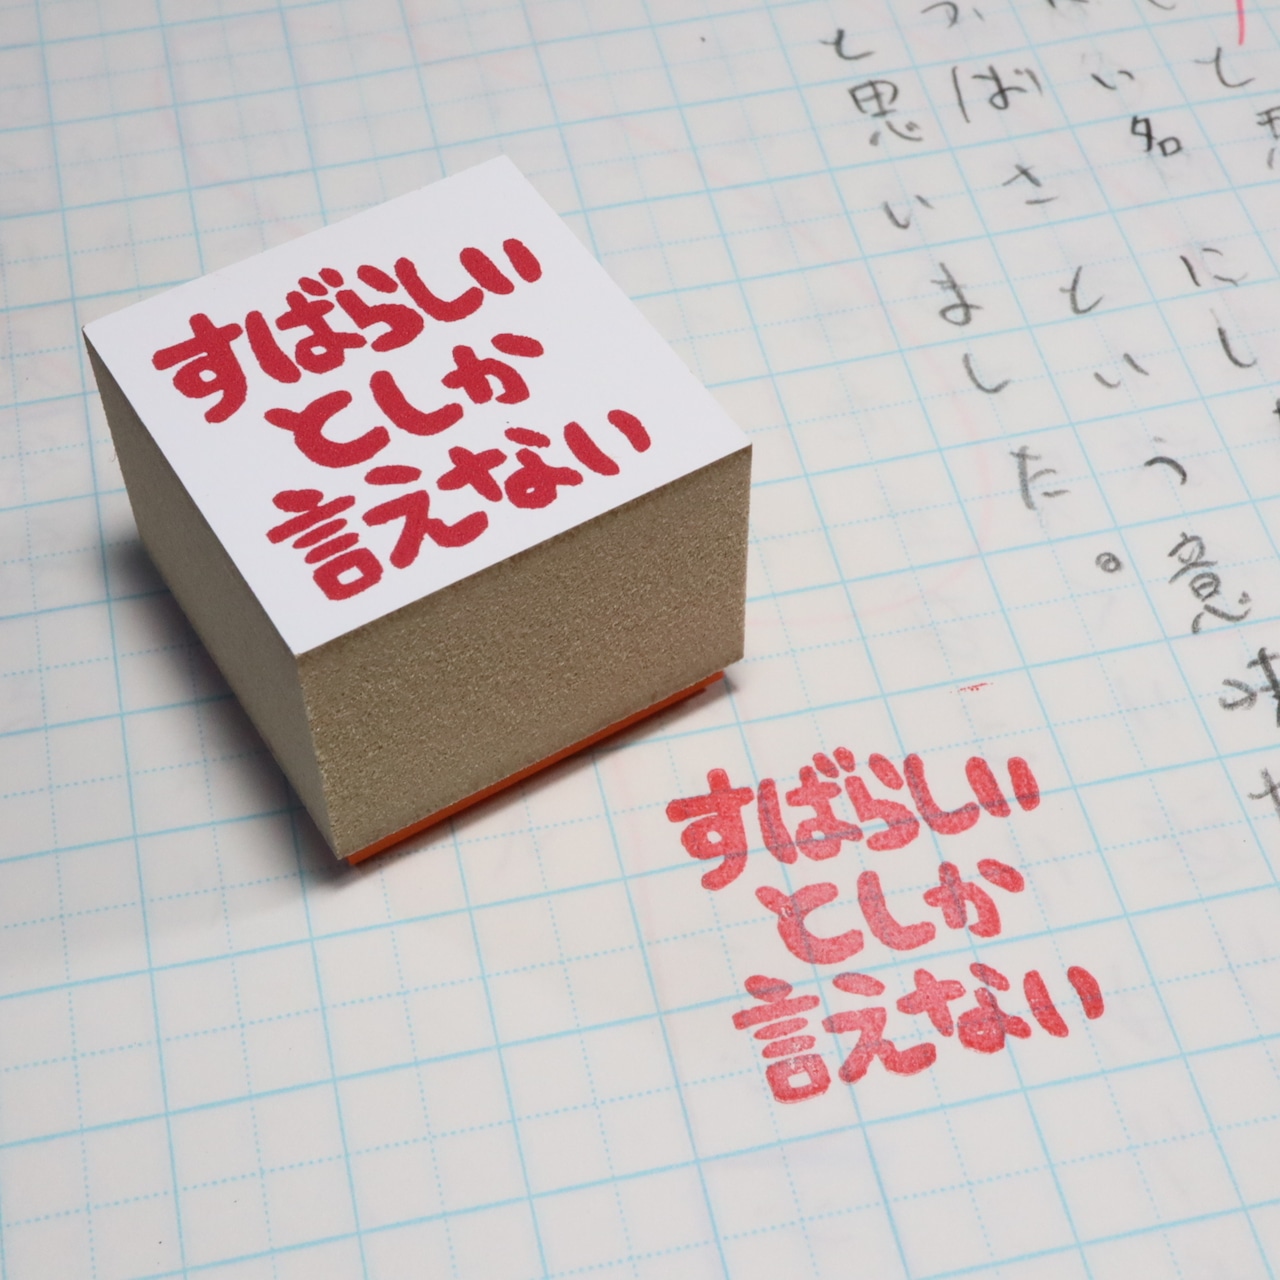 すばらしい
としか
言えない
すばらしい
としか
言えない
と思
い名
にし
ばさという意
と思いました。